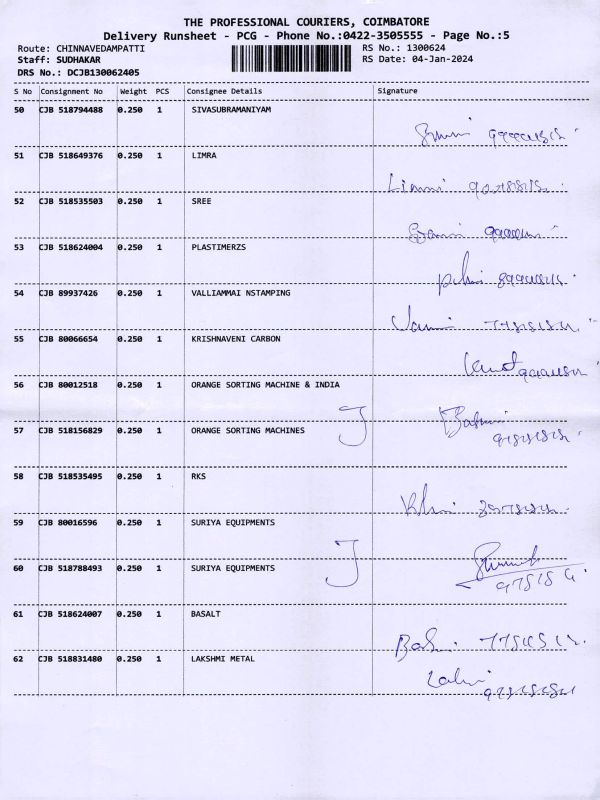 THE PROFESSIONAL COURIERS, COIMBATORE
Delivery Runsheet - PCG - Phone No.:0422-3505555 - Page No.:5
Route: CHINNAVEDAMPATTI RS No.: 1300624
Staff: SUDHAKAR RS Date: 04-Jan-2024
DRS No.: DCJB130062405
S No Consignment No Weight PCS Consignee Details Signature
50 CJB 518794488 0.250 1 SIVASUBRAMANIYAM
51 CJB 518649376 0.250 1 LIMRA
52 CJB 518535503 0.250 1 SREE
53 CJB 518624004 0.250 1 PLASTIMERZS
54 CJB 89937426 0.250 1 VALLIAMMAI NSTAMPING
55 CJB 80066654 0.250 1 KRISHNAVENI CARBON
56 CJB 80012518 0.250 1 ORANGE SORTING MACHINE & INDIA
57 CJB 518156829 0.250 1 ORANGE SORTING MACHINES
58 CJB 518535495 0.250 1 RKS
59 CJB 80016596 0.250 1 SURIYA EQUIPMENTS
60 CJB 518788493 0.250 1 SURIYA EQUIPMENTS
61 CJB 518624007 0.250 1 BASALT
62 CJB 518831480 0.250 1 LAKSHMI METAL